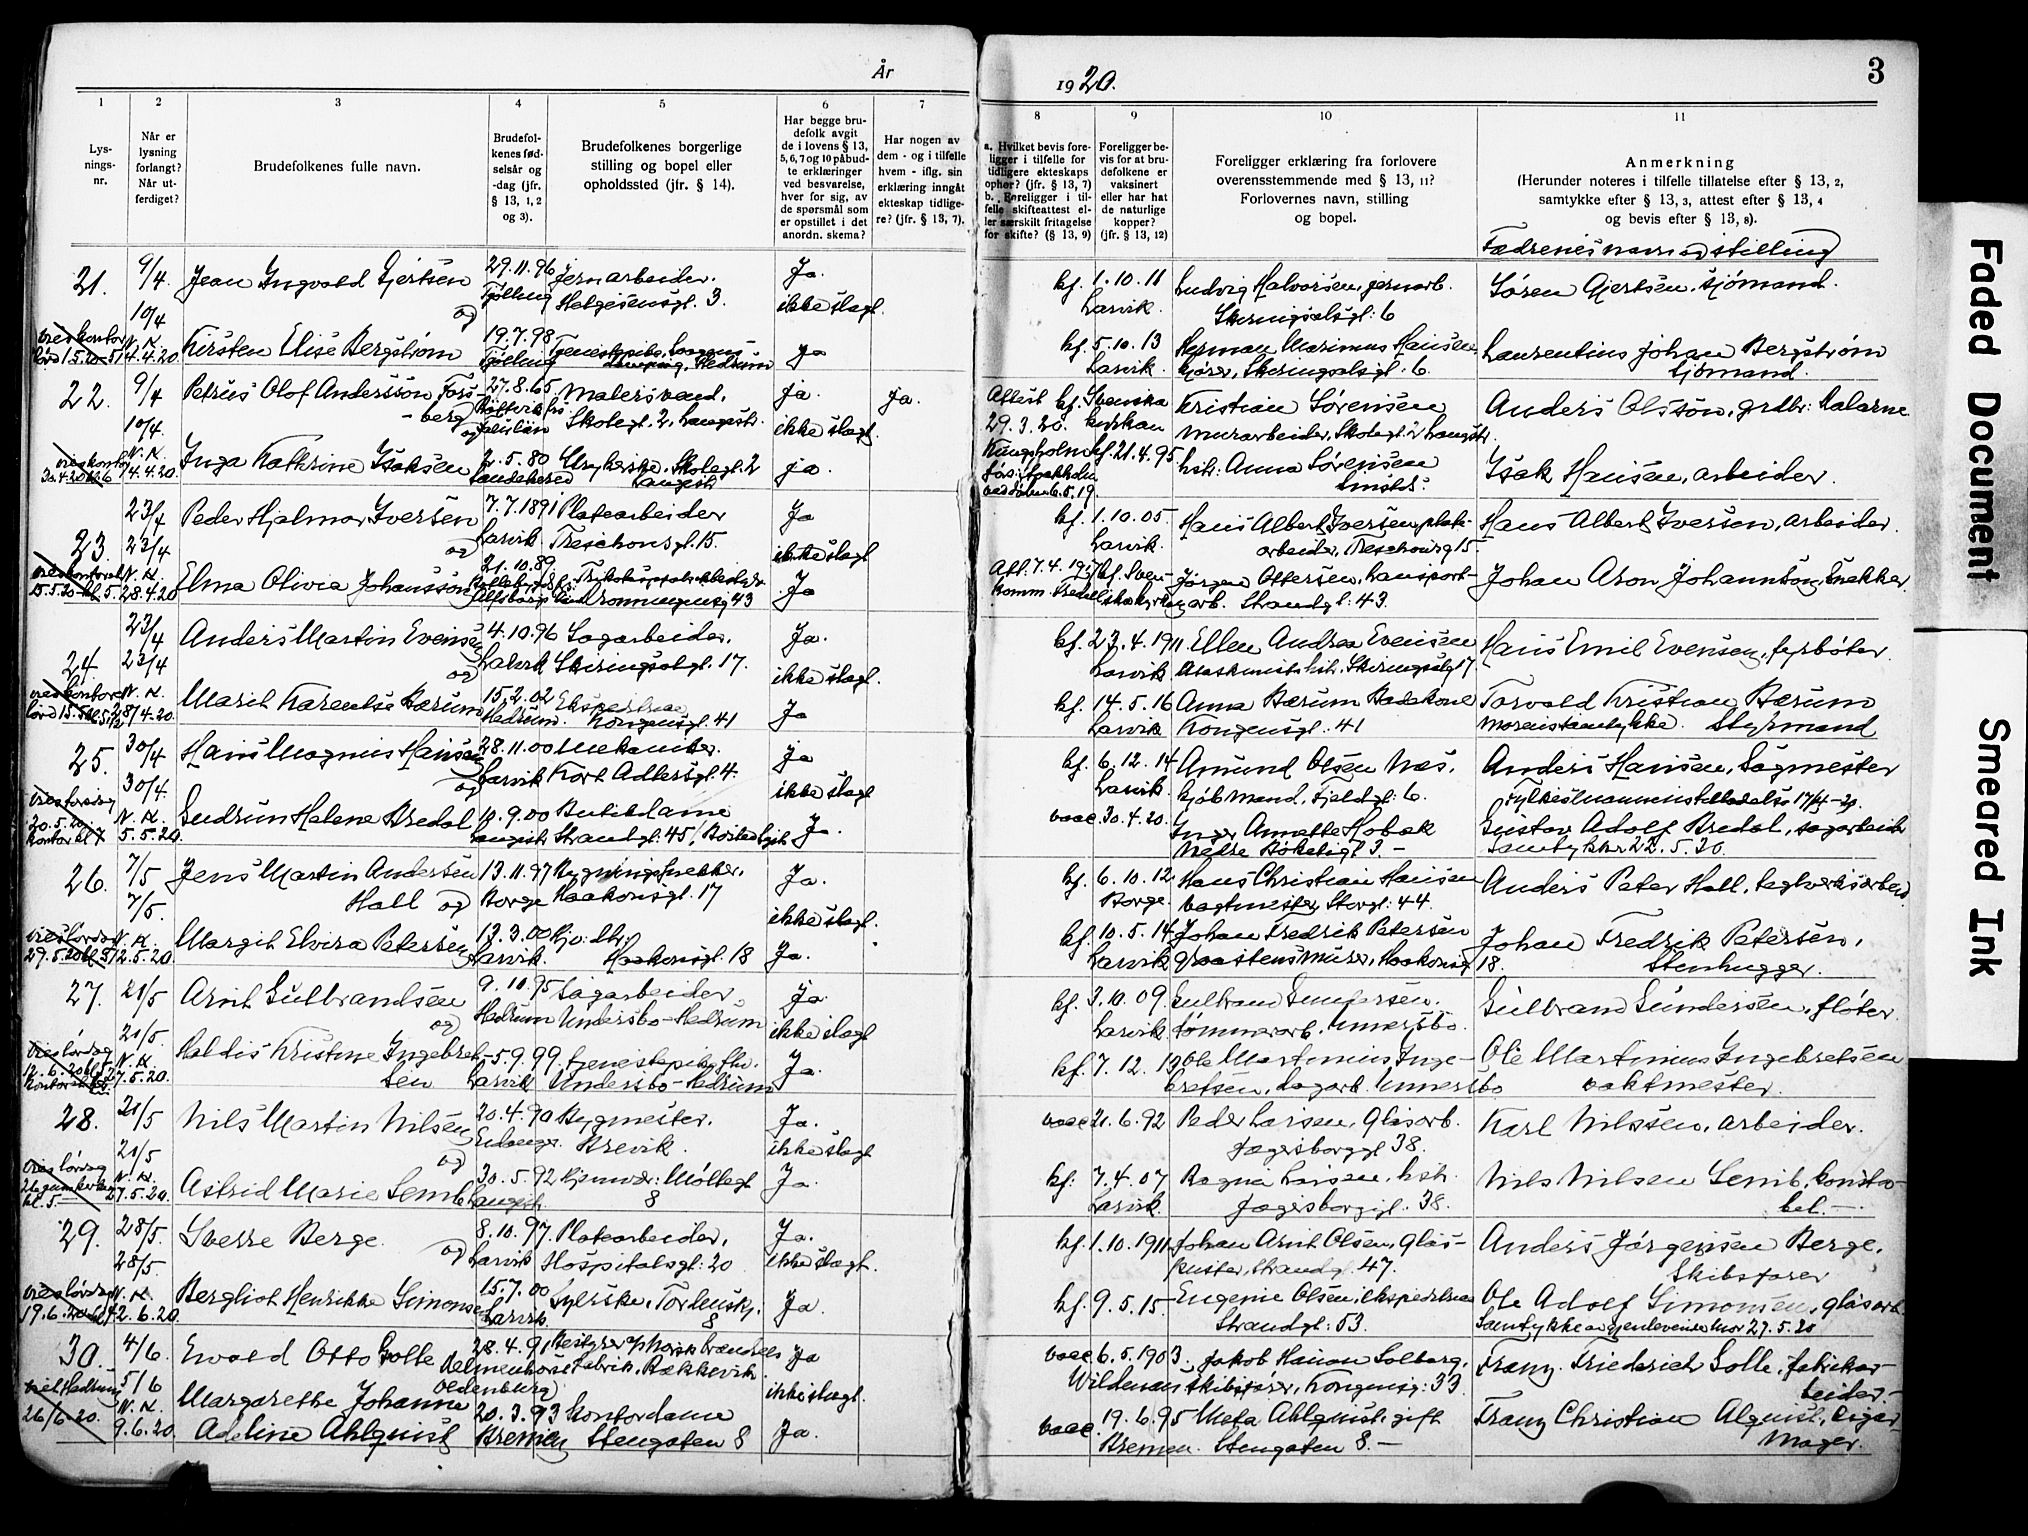 År
1920.
3
1
2
3
4
5
6
7
8
9
10
11
Lys-
nings-
nr.
Når er
lysning
forlangt?
Når ut-
ferdiget?
Brudefolkenes fulle navn.
Brudefol-
kenes fød-
selsår og
-dag (jfr.
§ 13, 1, 2
og 3).
Brudefolkenes borgerlige
stilling og bopel eller
opholdssted (jfr. § 14).
Har begge bru-
defolk avgit
de i lovens § 13,
5, 6, 7 og 10 påbud-
te erklæringer
ved besvarelse,
hver for sig, av
de spørsmål som
er opstillet i det
anordn. skema?
Har nogen av
dem - og i tilfelle
hvem - iflg. sin
erklæring inngåt
ekteskap tidlige-
re? (jfr. § 13, 7).
a. Hvilket bevis fore-
ligger i tilfelle for
tidligere ekteskaps
ophør? (jfr. § 13, 7)
b. Foreligger i til-
felle skifteattest el-
ler særskilt fritagelse
for skifte? (§ 13, 9)
Foreligger be-
vis for at bru-
defolkene er
vaksinert
eller har hat
de naturlige
kopper?
(jfr. § 13, 12)
Foreligger erklæring fra forlovere
overensstemmende med § 13, 11?
Forlovernes navn, stilling
og bopel.
Anmerkning
(Herunder noteres i tilfelle tillatelse efter § 13, 2,
samtykke efter § 13, 3, attest efter § 13, 4
og bevis efter § 13, 8).
Fædrenes navn og stilling
21. 9/4 Jean Ingvald Gjertsen 29.11.96 Jernarbeider. Ja. kf. 1.10.11 Ludvig Halvorsen, jernarb. Søren Gjertsen, sjömand.
10/4 og Tjølling Helgesensgt. 3. ikke slagt. Larvik. Skiringsalsgt: 6
Kirsten Elise Bergstrøm 19.7.98 ja kf. 5.10.13 Herman Marinius Hansen, Laurentius Johan Bergstrøm
14.4.20. Tjølling Hedrum Larvik. kjører, Skiringsalsgt. 6. Sjömand.
22. 9/4 Petrus Olof Andersson Fors- 27.8.65 Malersvend, ja. ja. Attest kf. Svenska Kristian Sørensen Anders Olsson, grdbr: Dalarne
10/4. -berg og Skolegt. 2, Langestr. ikke slagt. 29.3.20. kyrkan murarbeider, Skolegt 2 Langestr.
Inga Kathrine Isaksen 2.5.80 Skolegt. 2 ja. Kungsholm kf. 21.4.95 hstr: Anna Sørensen Isak Hansen, arbeider.
14.4.20. Sandeherred Langestr
23. 23/4 Peder Hjalmar Iversen 7.7.1891 Platearbeider Ja kf. 1.10.05 Hans Albert Iversen, plate- Hans Albert Iversen, arbeider.
23/4 og Larvik Treschowsgt. 15. ikke slagt Larvik. arbeider, Treschowsg 15.
Elma Olivia Johansson 21.10.89 Ja Att. 7.4.19 kf. Sven- Jörgen Ottersen, transport- Johan Aron Johannson, Snekker.
28.4.20 Dronningensg 43 arb. Strandgt: 43.
24. 23/4 Anders Martin Evensen 4.10.96 Sagarbeider, Ja. kf. 23.4.1911 Ellen Andrea Evensen Hans Emil Evensen, fyrbøter.
23/4 og Larvik Skiringsalsgt. 17. ikke slagt. Larvik Skiringsalsg 17
Marit Karentse Bærum 15.2.02 Ja kf. 14.5.16 Anna Bærum Badekone Torvald Kristian Bærum
28/4.20. Hedrum. Kongensgt. 41 Larvik Kongensgt. 41 Morens samtykke. Styrmand
25. 30/4 Hans Magnus Hansen 28.11.00 Mekaniker. ja kf. 6.12.14 Amund Olsen Næs, Anders Hansen, Sagmester
30/4. og Larvik Kort Adlersgt. 4. ikke slagt Larvik. kjöbmand, Fjeldgt: 6. Fylkesmannens tilladelse 17/4-20.
Gudrun Helene Bredal 10.9.00 Butikdame Ja. vacc. 30.4.20. Inger Annette Hobæk Gustav Adolf Bredal, sagarbeider
5.5.20. Langestr Strandgt: 45 Nedre Bøkeligt 3. - Samtykker 22.5.20.
26. 7/5 Jens Martin Andersen 13.11.97 Bygningssnekker. Ja. kf. 6.10.12 Hans Christian Hansen Anders Peter Hall, teglverksarbeid
7/5. Hall og Borge Haakonsgt. 17 ikke slagt. Borge. vagtmester, Storgt: 44.
Margit Elvira Petersen 13.3.00 Ja. kf. 10.5.14 Johan Fredrik Petersen Johan Fredrik Petersen,
12.5.20. Larvik. Haakonsgt. 18 Larvik Graastensmurer, Haakonsg 18. Stenhugger.
27. 21/5 Arnt Gulbrandsen 9.10.95 Sagarbeider Ja. kf. 3.10.09 Gulbrand Gundersen. Gulbrand Gundersen, fløter.
21/5. og Hedrum Undersbo - Hedrum ikke slagt Larvik. tømmerarb. Unnersbo.
Haldis Kristine Ingebret- 5.9.99 Ja. kf. 7.12.13 Ole Martinius Inge- Ole Martinius Ingebretsen
sen 27.5.20. Larvik Undersbo - Hedrum bretsen, sagarb. Unnersbo vaktmester.
28. 21/5 Nils Martin Nilsen 20.4.90 Bygmester. Ja. vacc 21.6.92 Peder Larsen, Glasarb. Karl Nilssen, arbeider.
21/5 og Eidanger. Brevik. ikke slagt Jegersborggt 38.
Astrid Marie Semb 30.5.92 Møllegt Ja. kf: 7.4.07 Ragna Larsen, hstr. Nils Nilsen Semb, konsta-
27.5.20. Langestr. 8 Larvik. Jegersborggt. 38. bel. -
29. 28/5. Sverre Berge 8.10.97. Platearbeider, Ja. kf. 1.10.1911 Johan Arnt Olsen, Glas- Anders Jørgensen Berge,
28/5. og Larvik Hospitalsgt: 20 ikke slagt. puster, Strandgt. 47. Skibsfører
Bergliot Henrikke Simonsen 15.7.00 Syerske, Tordenskj. Ja. kf. 9.5.15- Eugenie Olsen, ekspeditrice Ole Adolf Simonsen, glasarb.
2.6.20. Larvik 8 Strandgt: 53. Samtykke av gjenlevende mor 27.5.20
30. 4/6 Ewald Otto Golle 28.4.91 Bestyrer Ja vacc 6.5.1903. Jakob Hanson Solberg, Franz Friederich Golle, fabrikar-
5/6 Delmenhorst fabrik, Rækkevik Wildenau skibsfører, Kongensg: 33 beider. -
Margarethe Johanne Oldenburg ikke slagt.
Adeline Ahlquist 20.3.93 Kontordame Ja. vacc. 19.6.95 Meta Ahlquist, gift Franz Christian Alquist, Cigar-
9.6.20. Bremen Stengaten 8 Bremen. Stengaten 8. - mager.
Faded Document
Smeared Ink